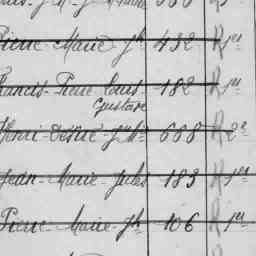 Pierre Marie Jh 432 R 1er
Francis-Pierre Louis- 182 R 1er
Gustave
Henri Désiré Jh 668 R 2e
Jean-Marie-Jules 183 R 1er
Pierre Marie-Jh 106 R 1er